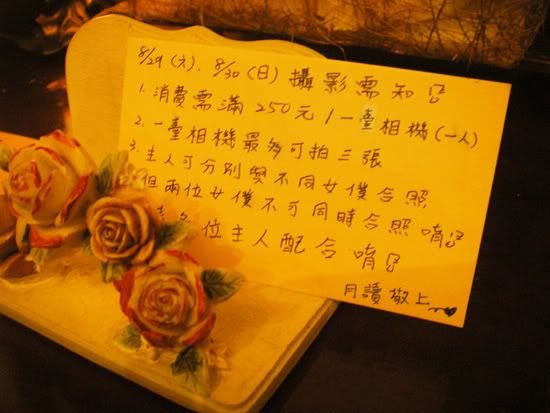 8/29 (六). 8/30 (日) 攝影需知!!
1. 消費需滿250元 / 一臺相機 (一人)
2. 一臺相機最多可拍三張
3. 主人可分別與不同女僕合照
但兩位女僕不可同時合照唷!!
各位主人配合唷!!
月讀敬上~♥